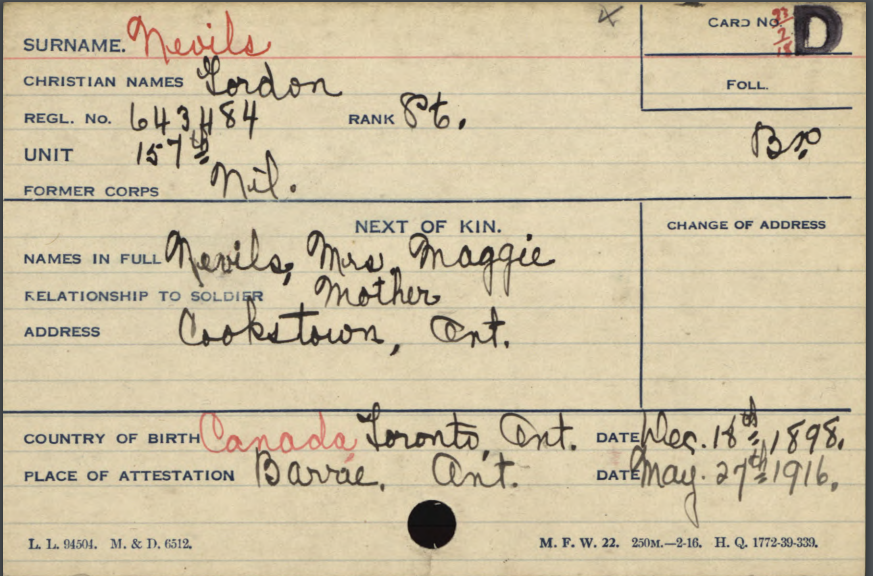 SURNAME. Nevils
CARD NO. D
23/2/18
CHRISTIAN NAMES Gordon
FOLL.
REGL. No. 643484 RANK Pt.
UNIT 157th
FORMER CORPS Nil.
NEXT OF KIN.
CHANGE OF ADDRESS
NAMES IN FULL Nevils, Mrs. Maggie
RELATIONSHIP TO SOLDIER Mother
ADDRESS Cookstown, Ont.
COUNTRY OF BIRTH Canada Toronto, Ont. DATE Dec. 18th, 1898.
PLACE OF ATTESTATION Barrie, Ont. DATE May. 27th 1916.
L. L. 94504. M. & D. 6512.
M. F. W. 22. 250M.—2-16. H. Q. 1772-39-339.